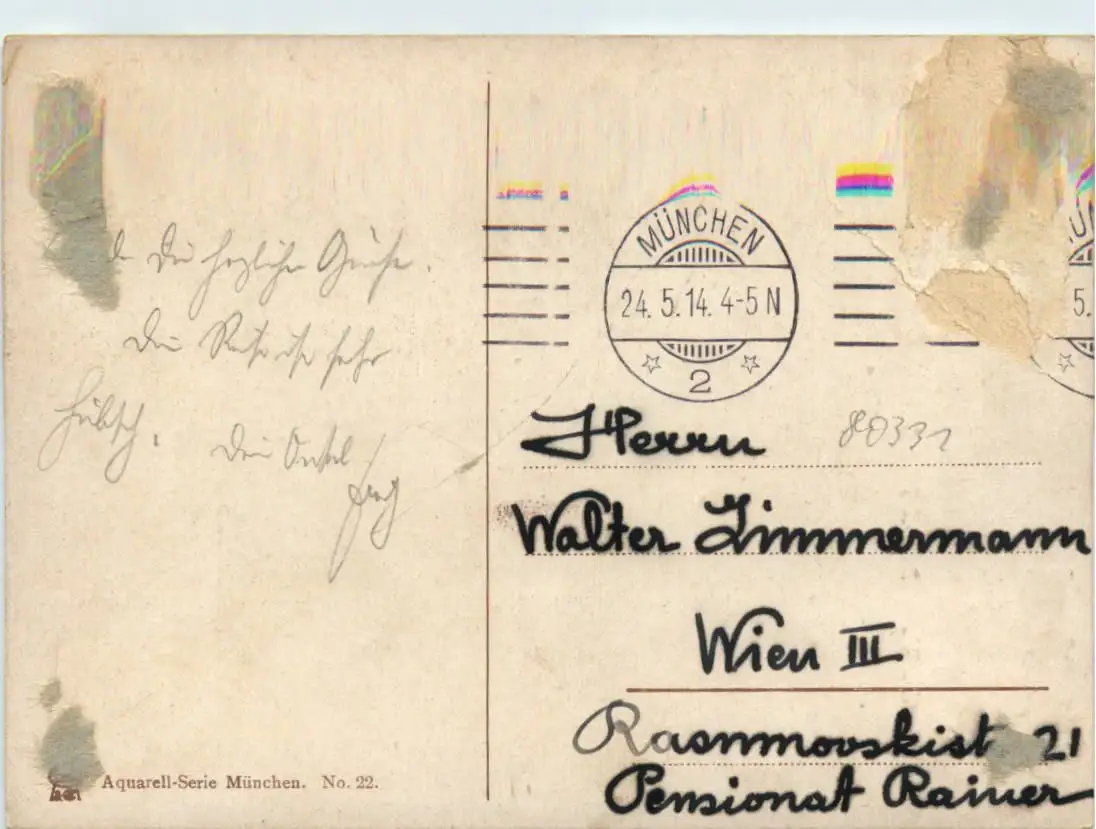 die herzlichen Grüße.
Die Reise ist sehr
hübsch. Dein Onkel
Aquarell-Serie München. No. 22.
MÜNCHEN
24. 5. 14. 4-5 N
2
5.
Herrn
80331
Walter Zimmermann
Wien III
Rasnmovskist 21
Pensionat Rainer